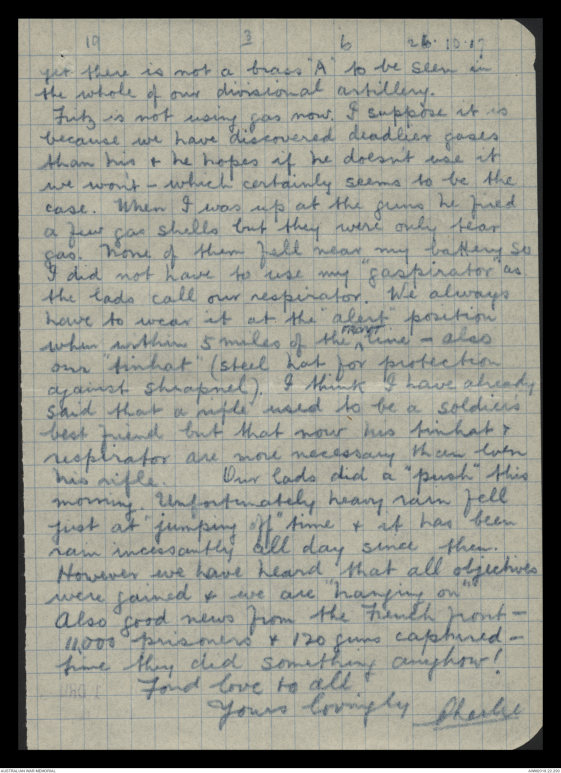 19 3 6 26.10.17
yet there is not a brass "A" to be seen in
the whole of our divisional artillery.
Fritz is not using gas now. I suppose it is
because we have discovered deadlier gases
than his & he hopes if he doesn't use it
we won't - which certainly seems to be the
case. When I was up at the guns he fired
a few gas shells but they were only tear
gas. None of them fell near my battery so
I did not have to use my "gaspirator" as
the lads call our respirator. We always
have to wear it at the "alert" position
when within 5 miles of the FRONT line - also
our "tinhat" (steel hat for protection
against shrapnel). I think I have already
said that a rifle used to be a soldier's
best friend but that now his tinhat &
respirator are more necessary than even
his rifle. Our lads did a "push" this
morning. Unfortunately heavy rain fell
just at "jumping off" time & it has been
rain incessantly all day since then.
However we have heard that all objectives
were gained & we are "hanging on"
Also good news from the French front -
11,000 prisoners & 120 guns captured -
time they did something anyhow!
Fond love to all
Yours lovingly Charlie
AUSTRALIAN WAR MEMORIAL